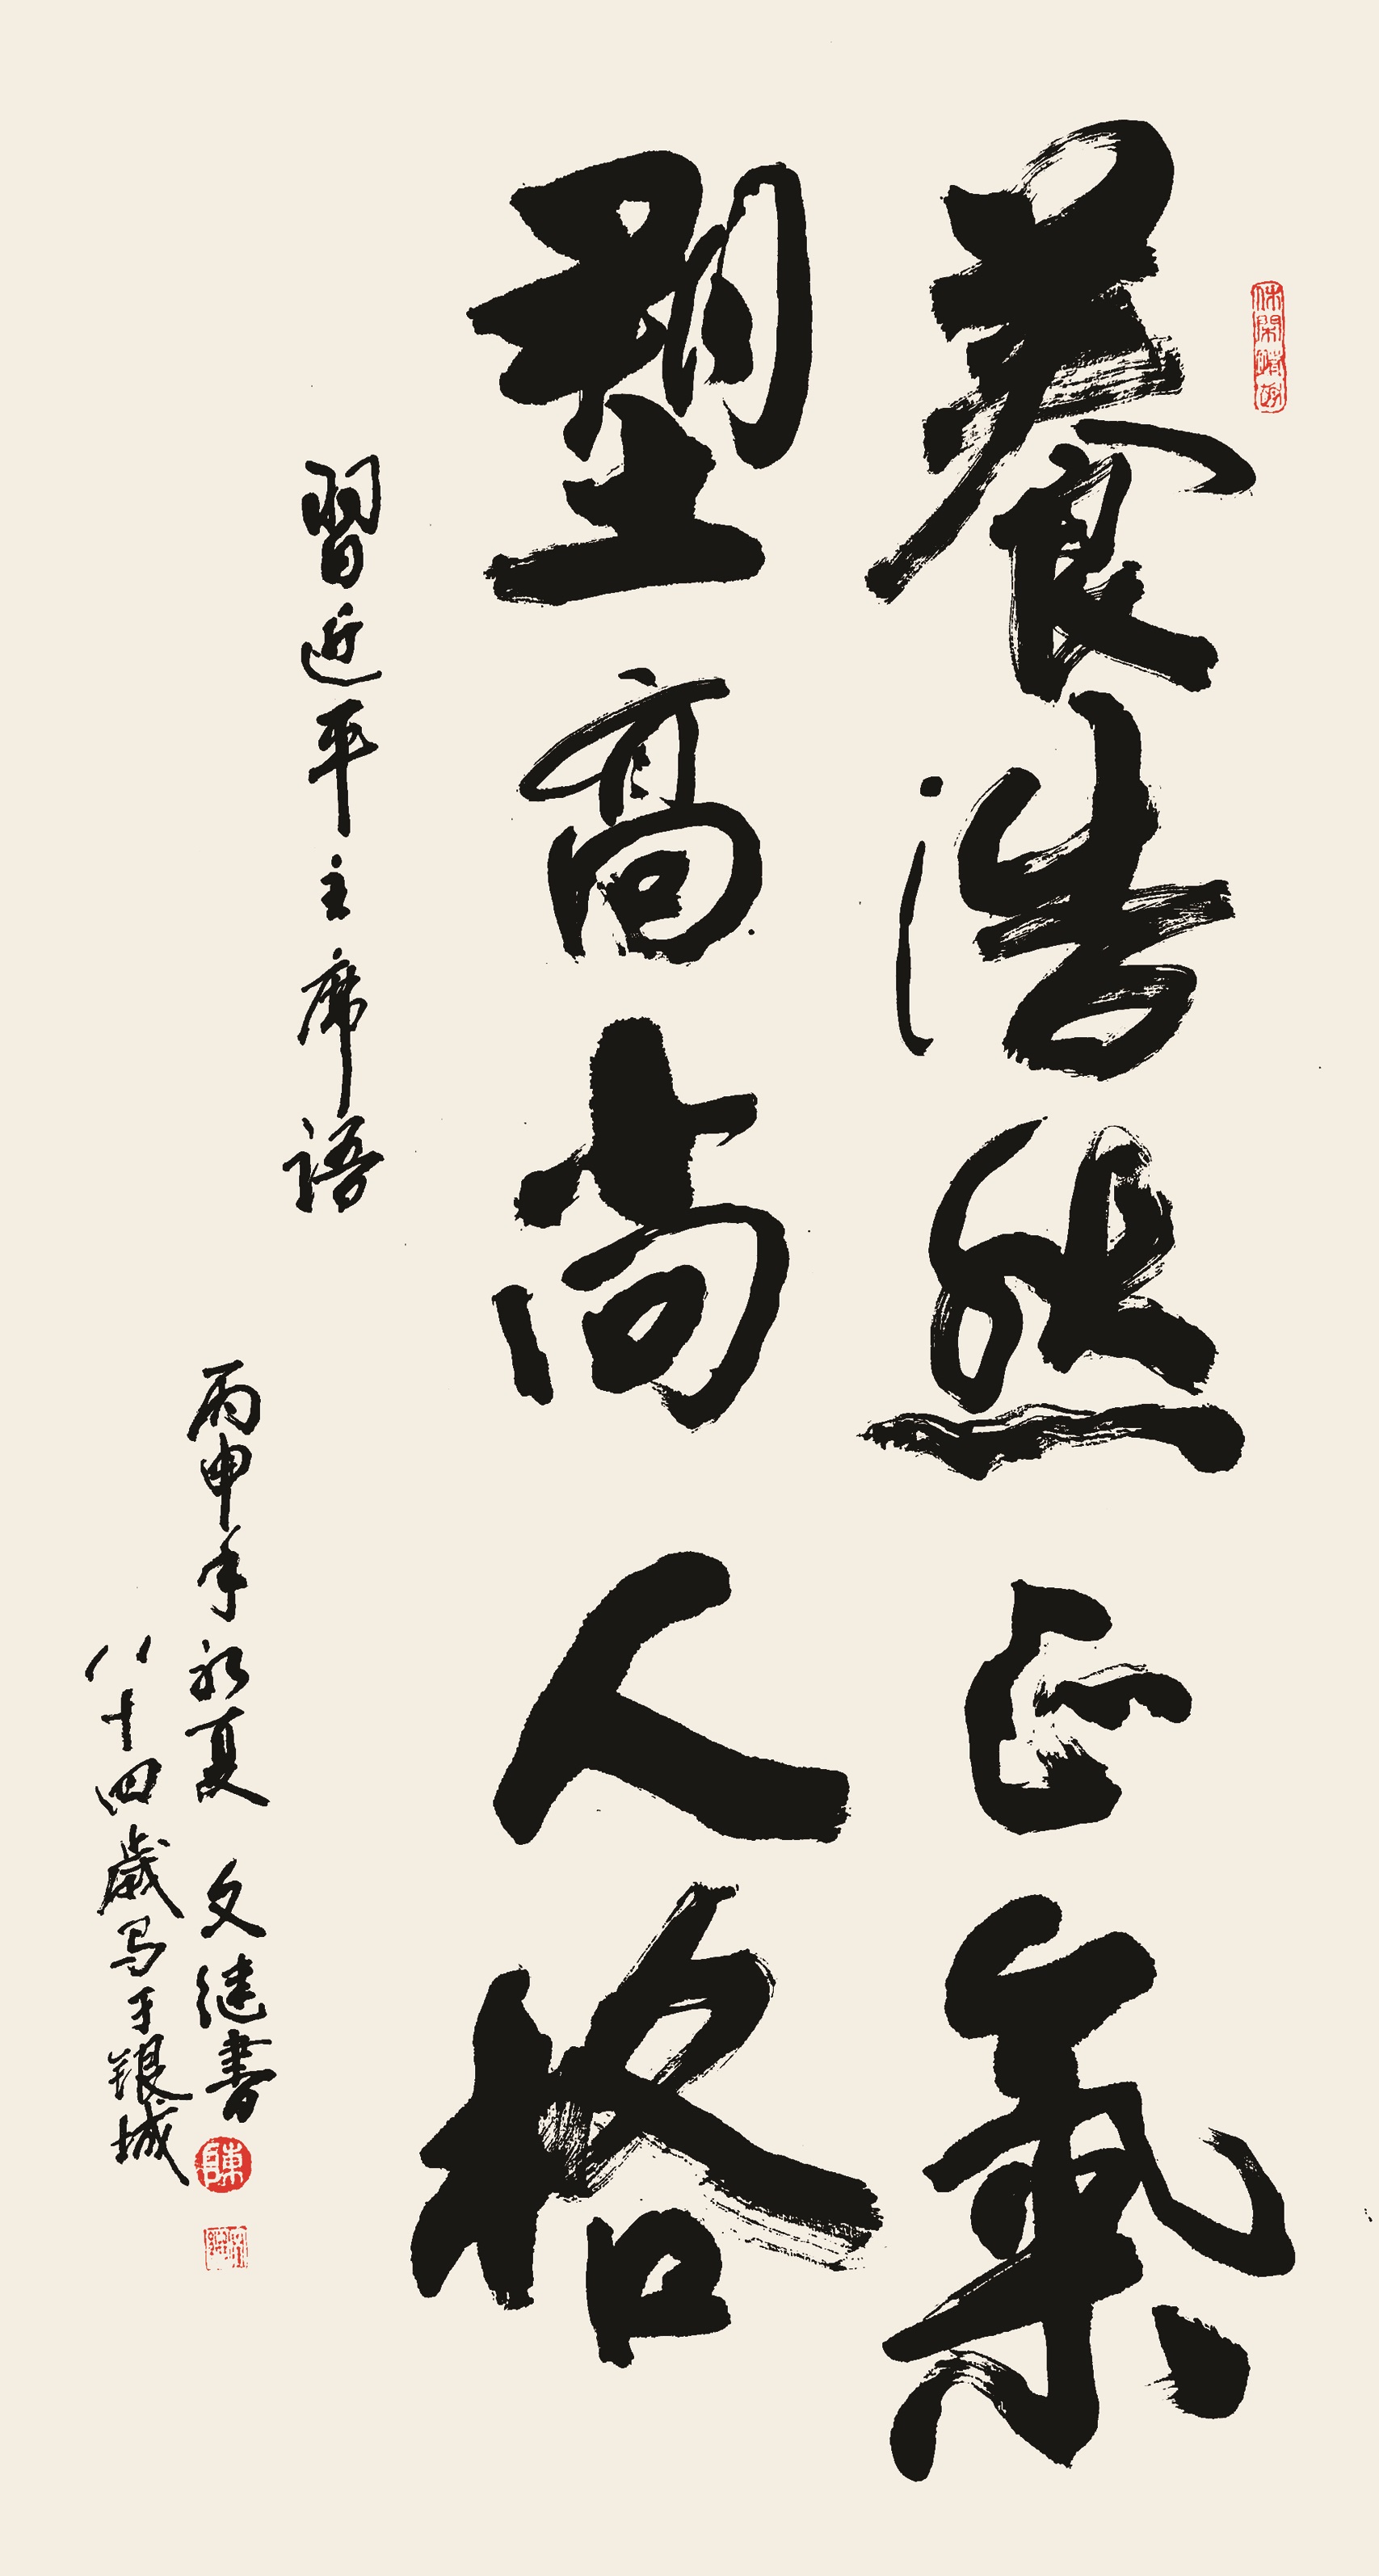 養浩然正氣
塑高尚人格
習近平主席語
丙申年初夏 文继書
八十四歲写于银城
陳